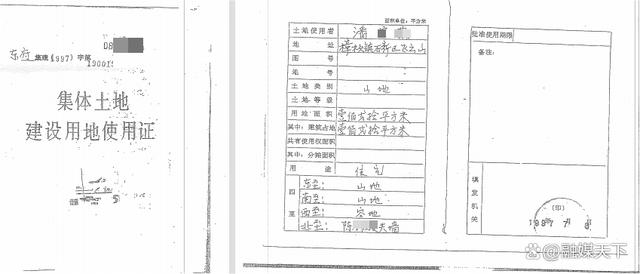 D8
东府集建(1997)字第
190015
集体土地
建设用地使用证
面积单位:平方米
土地使用者 潘
地址 樟木头镇石新区飞云山
图号
地号
土地类别 山地
土地等级
用地面积 壹佰贰拾平方米
其中:建筑占地 壹佰贰拾平方米
共有使用权面积
其中:分摊面积
用途 住宅
四至
东至: 山地
南至: 山地
西至: 空地
北至: 陈 夫墙
批准使用期限
备注:
填发机关
(印)
融媒天下